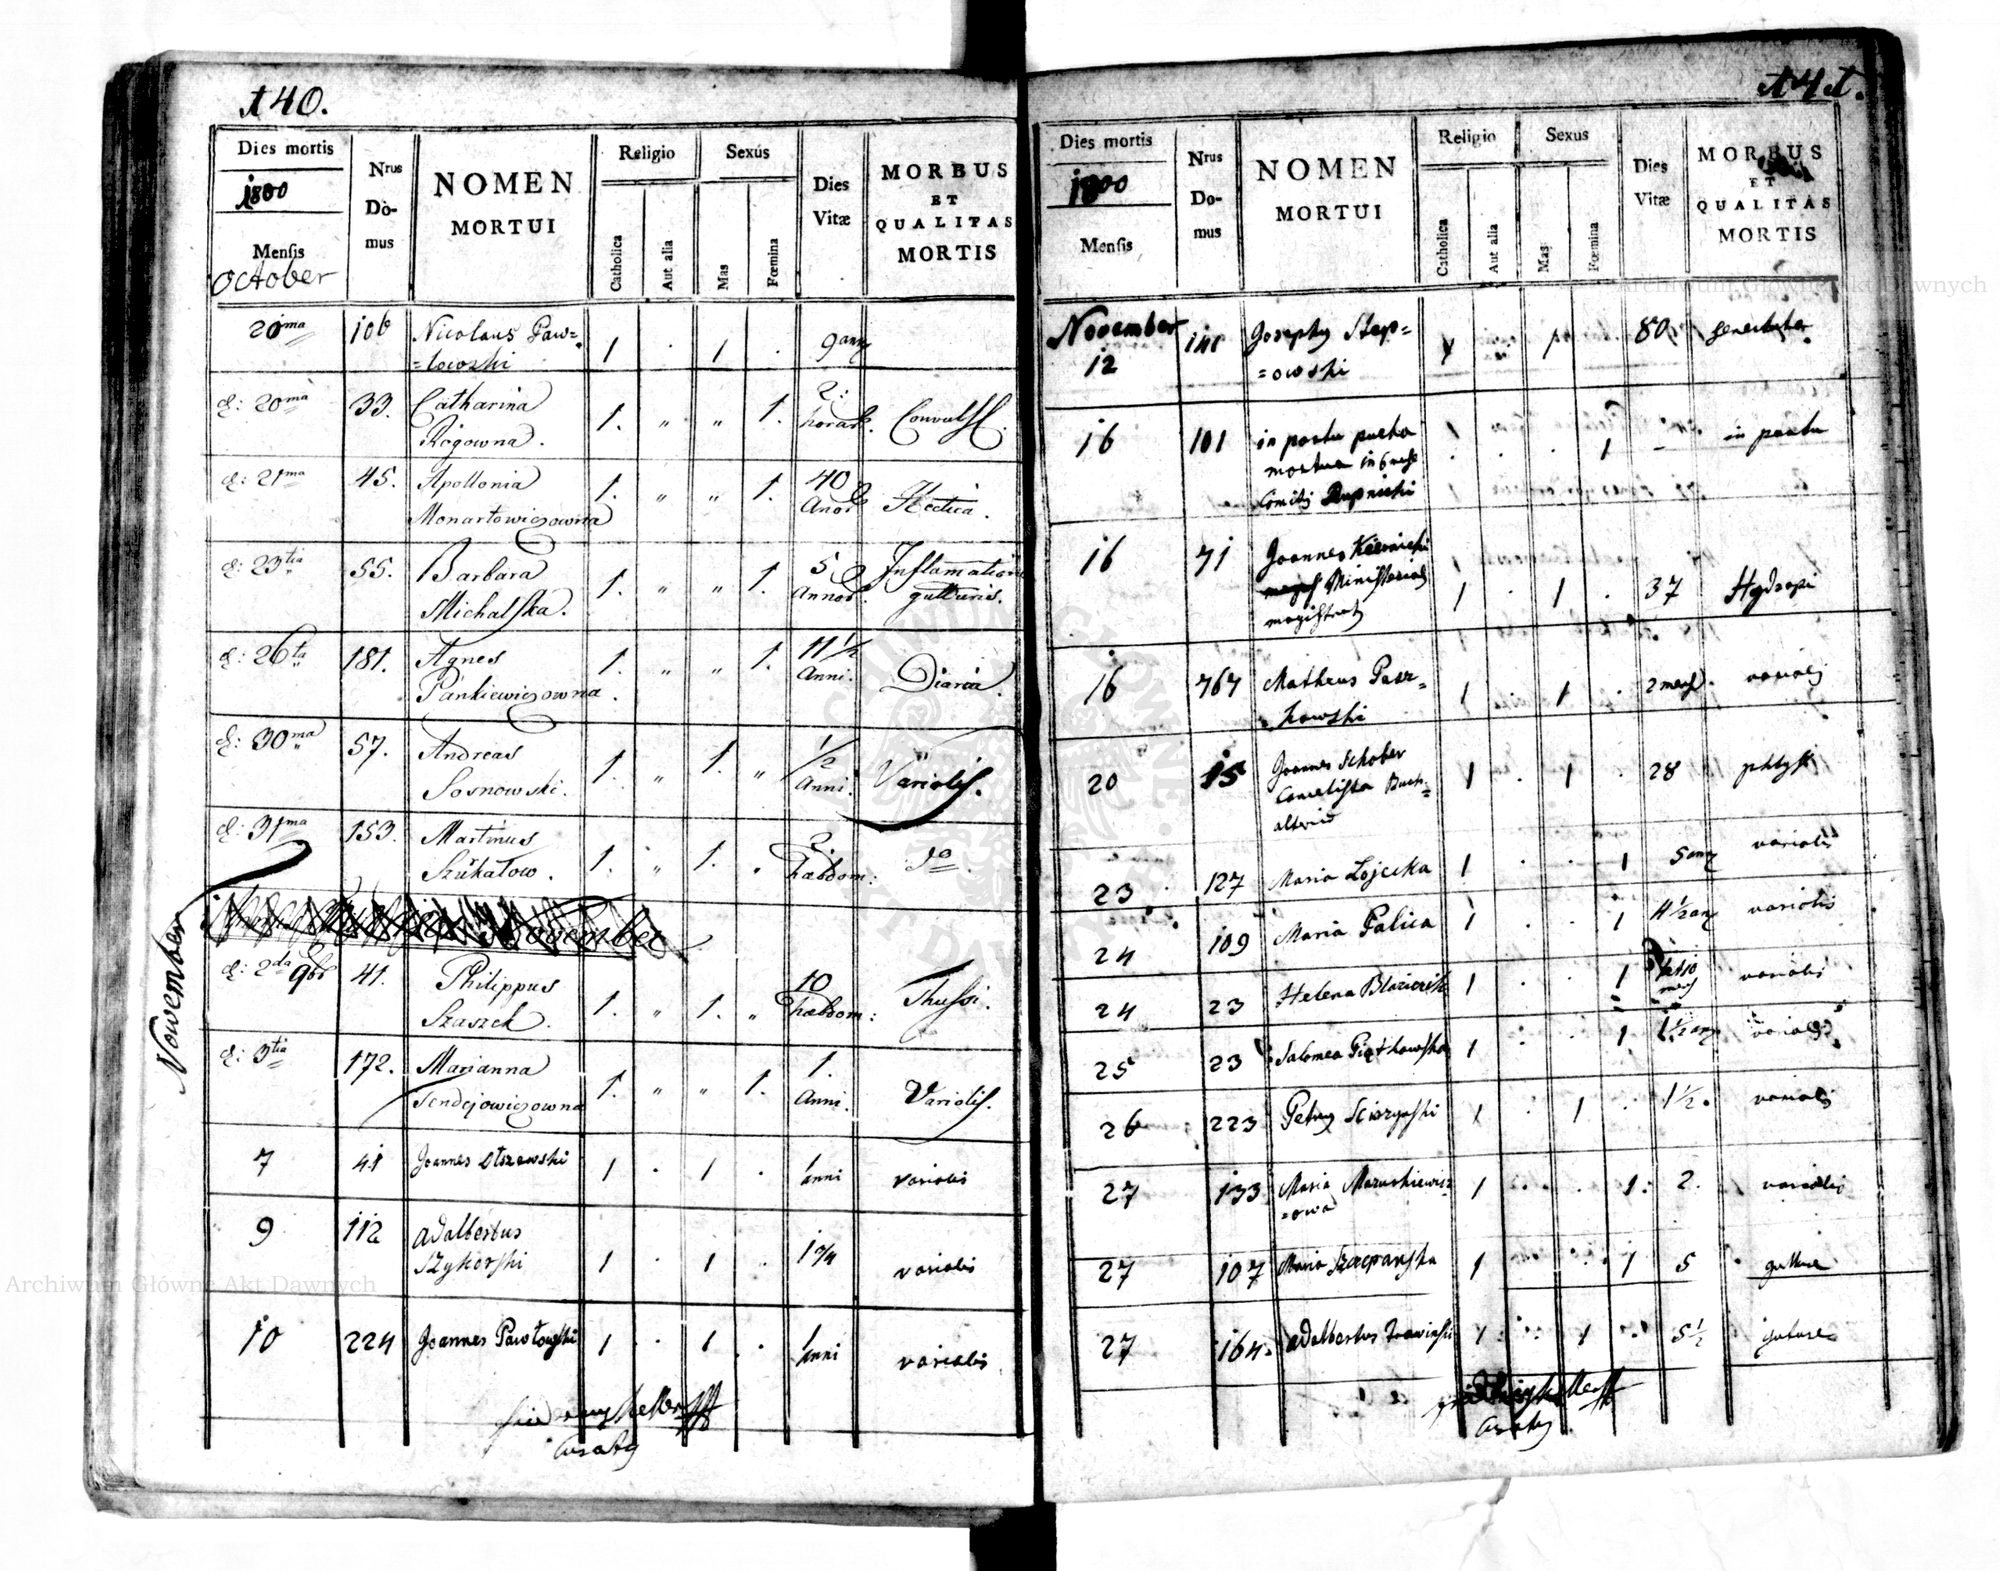 140.
Dies mortis
1800
Mensis
October
Nrus
Do-
mus
NOMEN
MORTUI
Religio
Catholica
Aut alia
Sexus
Mas
Fœmina
Dies
Vitæ
MORBUS
ET
QUALITAS
MORTIS
20ma 106 Nicolaus Paw= 1 . 1 . 9 any
=lowski
d: 20ma 33. Catharina 1. " " 1. 2: Convuls.
Rogowna. horar.
d: 21ma 45. Apollonia 1. " " 1. 40 Hectica.
Monartowiczowna Anor
d: 23tia 55. Barbara 1. " " 1. 5 Inflamatione
Michalska. Annor. gutturis.
d: 26ta 181. Agnes 1. " " 1. 11 1/2 Diaria.
Pankiewiczowna. Anni.
d: 30ma 57. Andreas 1. " 1. " 1/2 Variolis.
Sosnowski. Anni.
d: 31ma 153. Martinus 1. " 1. " 2. do
Szukałow. hæbdom:
November
November
d: 2da 9br 41. Philippus 1. " 1. " 10 Thussi.
Szaszek. hæbdom:
d: 3tia 172. Marianna 1. " " 1. 1. Variolis.
Sendejowiczowna Anni.
7 41 Joannes 1 . 1 . 1 anni variolis
9 112 Adalbertus
Szykorski 1 . 1 . 1 3/4 variolis
10 224 Joannes Pawłowski 1 . 1 . 1 anni variolis
141.
Dies mortis
1800
Mensis
Nrus
Do-
mus
NOMEN
MORTUI
Religio
Catholica
Aut alia
Sexus
Mas
Fœmina
Dies
Vitæ
MORBUS
ET
QUALITAS
MORTIS
November 141 Josephus Step= 1 1 80
12 =owski
16 101 in partu 1 . . 1 - in partu
16 71 Joannes
Ministerialis 1 . 1 . 37 Hydropi
magistrat
16 767 Matheus Pasz= 1 1 . 2 mens. variolis
=kowski
20 15 Joannes Schober 1 . 1 . 28 phtysi
23 127 Maria Łojecka 1 . . 1 5 any variolis
24 109 Maria Palica 1 . . 1 4 1/2 any variolis
24 23 Helena 1 . . 1 variolis
25 23 Salomea Piątkowska 1 . . 1 1 1/2 any variolis
26 223 Petrus 1 . 1 . 1 1/2. variolis
27 133 Maria Mazurkiewicz 1 . . 1. 2. variolis
=owa
27 107 Maria Szczepańska 1 . . 1 5 guture
27 164. Adalbertus 1 . 1 . 5 1/2 guture
Archiwum Główne Akt Dawnych
Archiwum Główne Akt Dawnych
ARCHIWUM GŁÓWNE AKT DAWNYCH